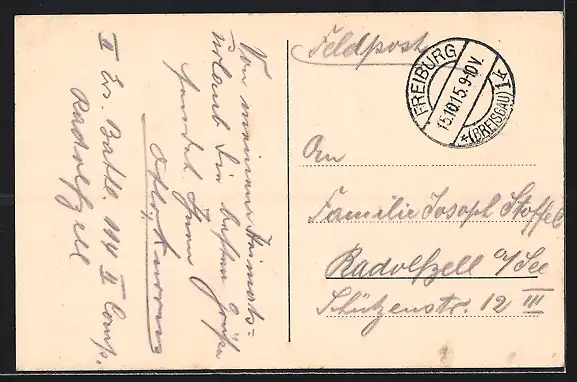 Von meinem Heimats=
urlaub die besten Grüße
sendet Ihnen
II Ers. Batll. 114 II Comp.
Radolfzell
Feldpost
FREIBURG
15.10.15.9-10V.
*(BREISGAU)1k
An
Familie Josoph Stoffel
Radolfzell a/See
Schützenstr. 12 III